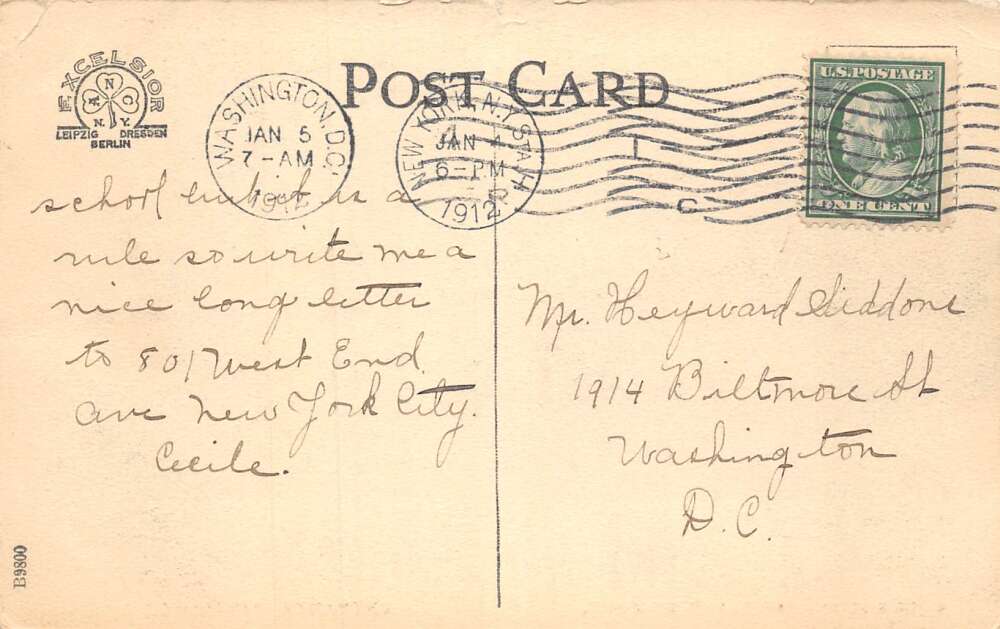 POST CARD
EXCELSIOR
A N C
N.Y.
LEIPZIG DRESDEN
BERLIN
WASHINGTON, D.C.
JAN 5
7-AM
1912
NEW YORK, N.Y. STA. H
JAN 4
6-PM
1912
U.S. POSTAGE
ONE CENT
school is a
rule so write me a
nice long letter
to 801 West End
ave New York City.
Cecile.
Mr. Heyward Siddons
1914 Biltmore St
Washington
D.C.
B9800